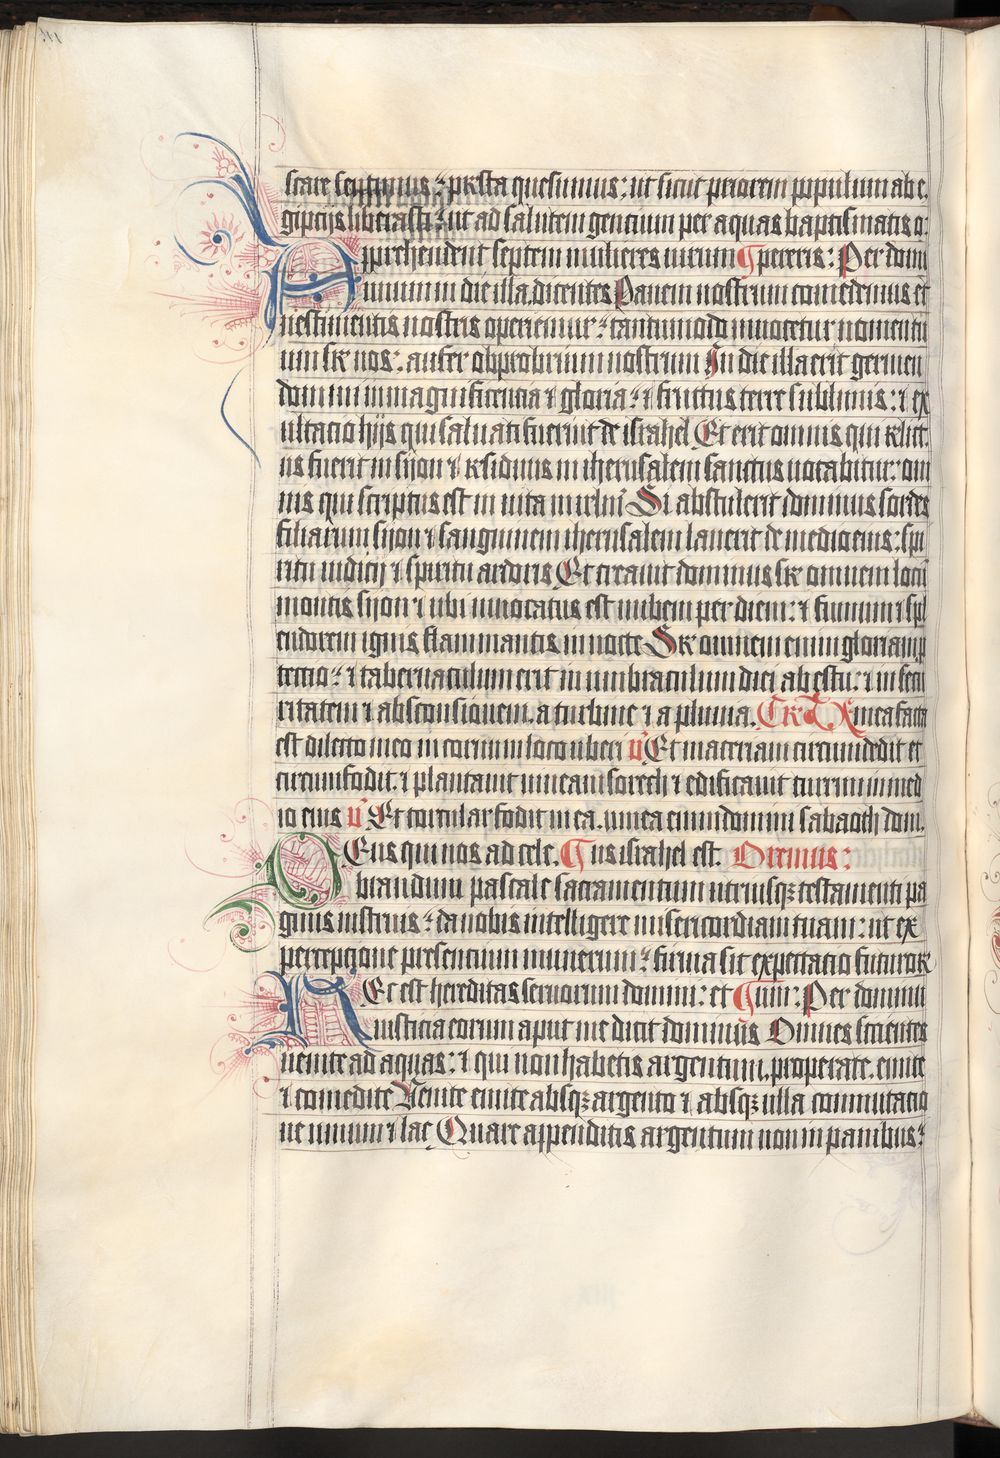 scare sentimus: presta quesumus: ut sicut priorem populum ab e
giptijs liberasti: ut ad salutem gentium per aquas baptismatis o
Apprehendent septem mulieres uirum ¶ pereris: Per domi
unum in die illa, dicentes Panem nostrum comedemus et
uestimentis nostris operiemur: tantumodo inuocetur nomen tu
um sr nos: aufer obprobrium nostrum In die illa erit germen
domini in magnificencia ⁊ gloria: ⁊ fructus terre sublimis: ⁊ ex
ultacio hijs qui saluati fuerint de israhel Et erit omnis qui relict
us fuerit in syon ⁊ residuus in iherusalem sanctus uocabitur: om
nis qui scriptus est in uita in irlm Si abstulerit dominus sordes
filiarum syon ⁊ sanguinem iherusalem lauerit de medio eius: spi
ritu iudicij ⁊ spiritu ardoris Et creauit dominus sr omnem locū
montis syon ⁊ ubi inuocatus est nubem per diem: ⁊ fumum ⁊ spl
endorem ignis flammantis in nocte Sr omnem enim gloriam p
tectio: ⁊ tabernaculum erit in umbraculum diei ab estu: ⁊ in secu
ritatem ⁊ absconsionem, a turbine ⁊ a pluuia. Tract Vinea facta
est dilecto meo in cornu in loco uberi v̄ Et maceriam circumdedit et
circumfodit: ⁊ plantauit uineam sorech ⁊ edificauit turrim in med
io eius v̄ Et torcular fodit in ea. uinea enim domini sabaoth dom,
Deus qui nos ad cele, ¶ us israhel est. Oremus:
brandum pascale sacramentum utriusqꝫ testamenti pa
ginis instruis: da nobis intelligere misericordiam tuam: ut ex
perceptione presencium munerum: firma sit expectatio futuroꝝ
Hec est hereditas seruorum domini: et ¶ tum: Per dominū
iusticia eorum aput me dicit dominus Omnes scientes
uenite ad aquas: ⁊ qui non habetis argentum, properate. emite
⁊ comedite Venite emite absqꝫ argento ⁊ absqꝫ ulla commutacio
ne uinum ⁊ lac Quare appenditis argentum non in panibus: